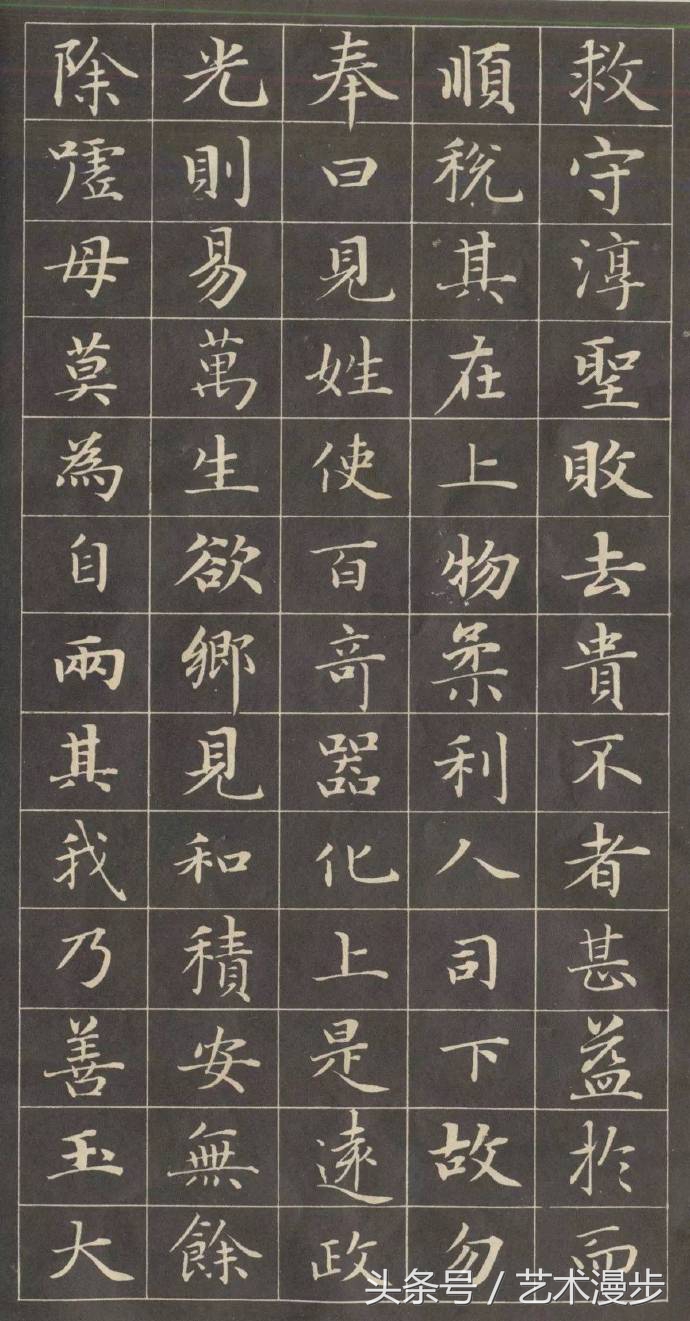 救守淳聖敗去貴不者甚益於而
順稅其在上物柔利人司下故勿
奉曰見姓使百奇器化上是遠政
光則易萬生欲鄉見和積安無餘
除噓母莫為自兩其我乃善玉大
头条号 / 艺术漫步